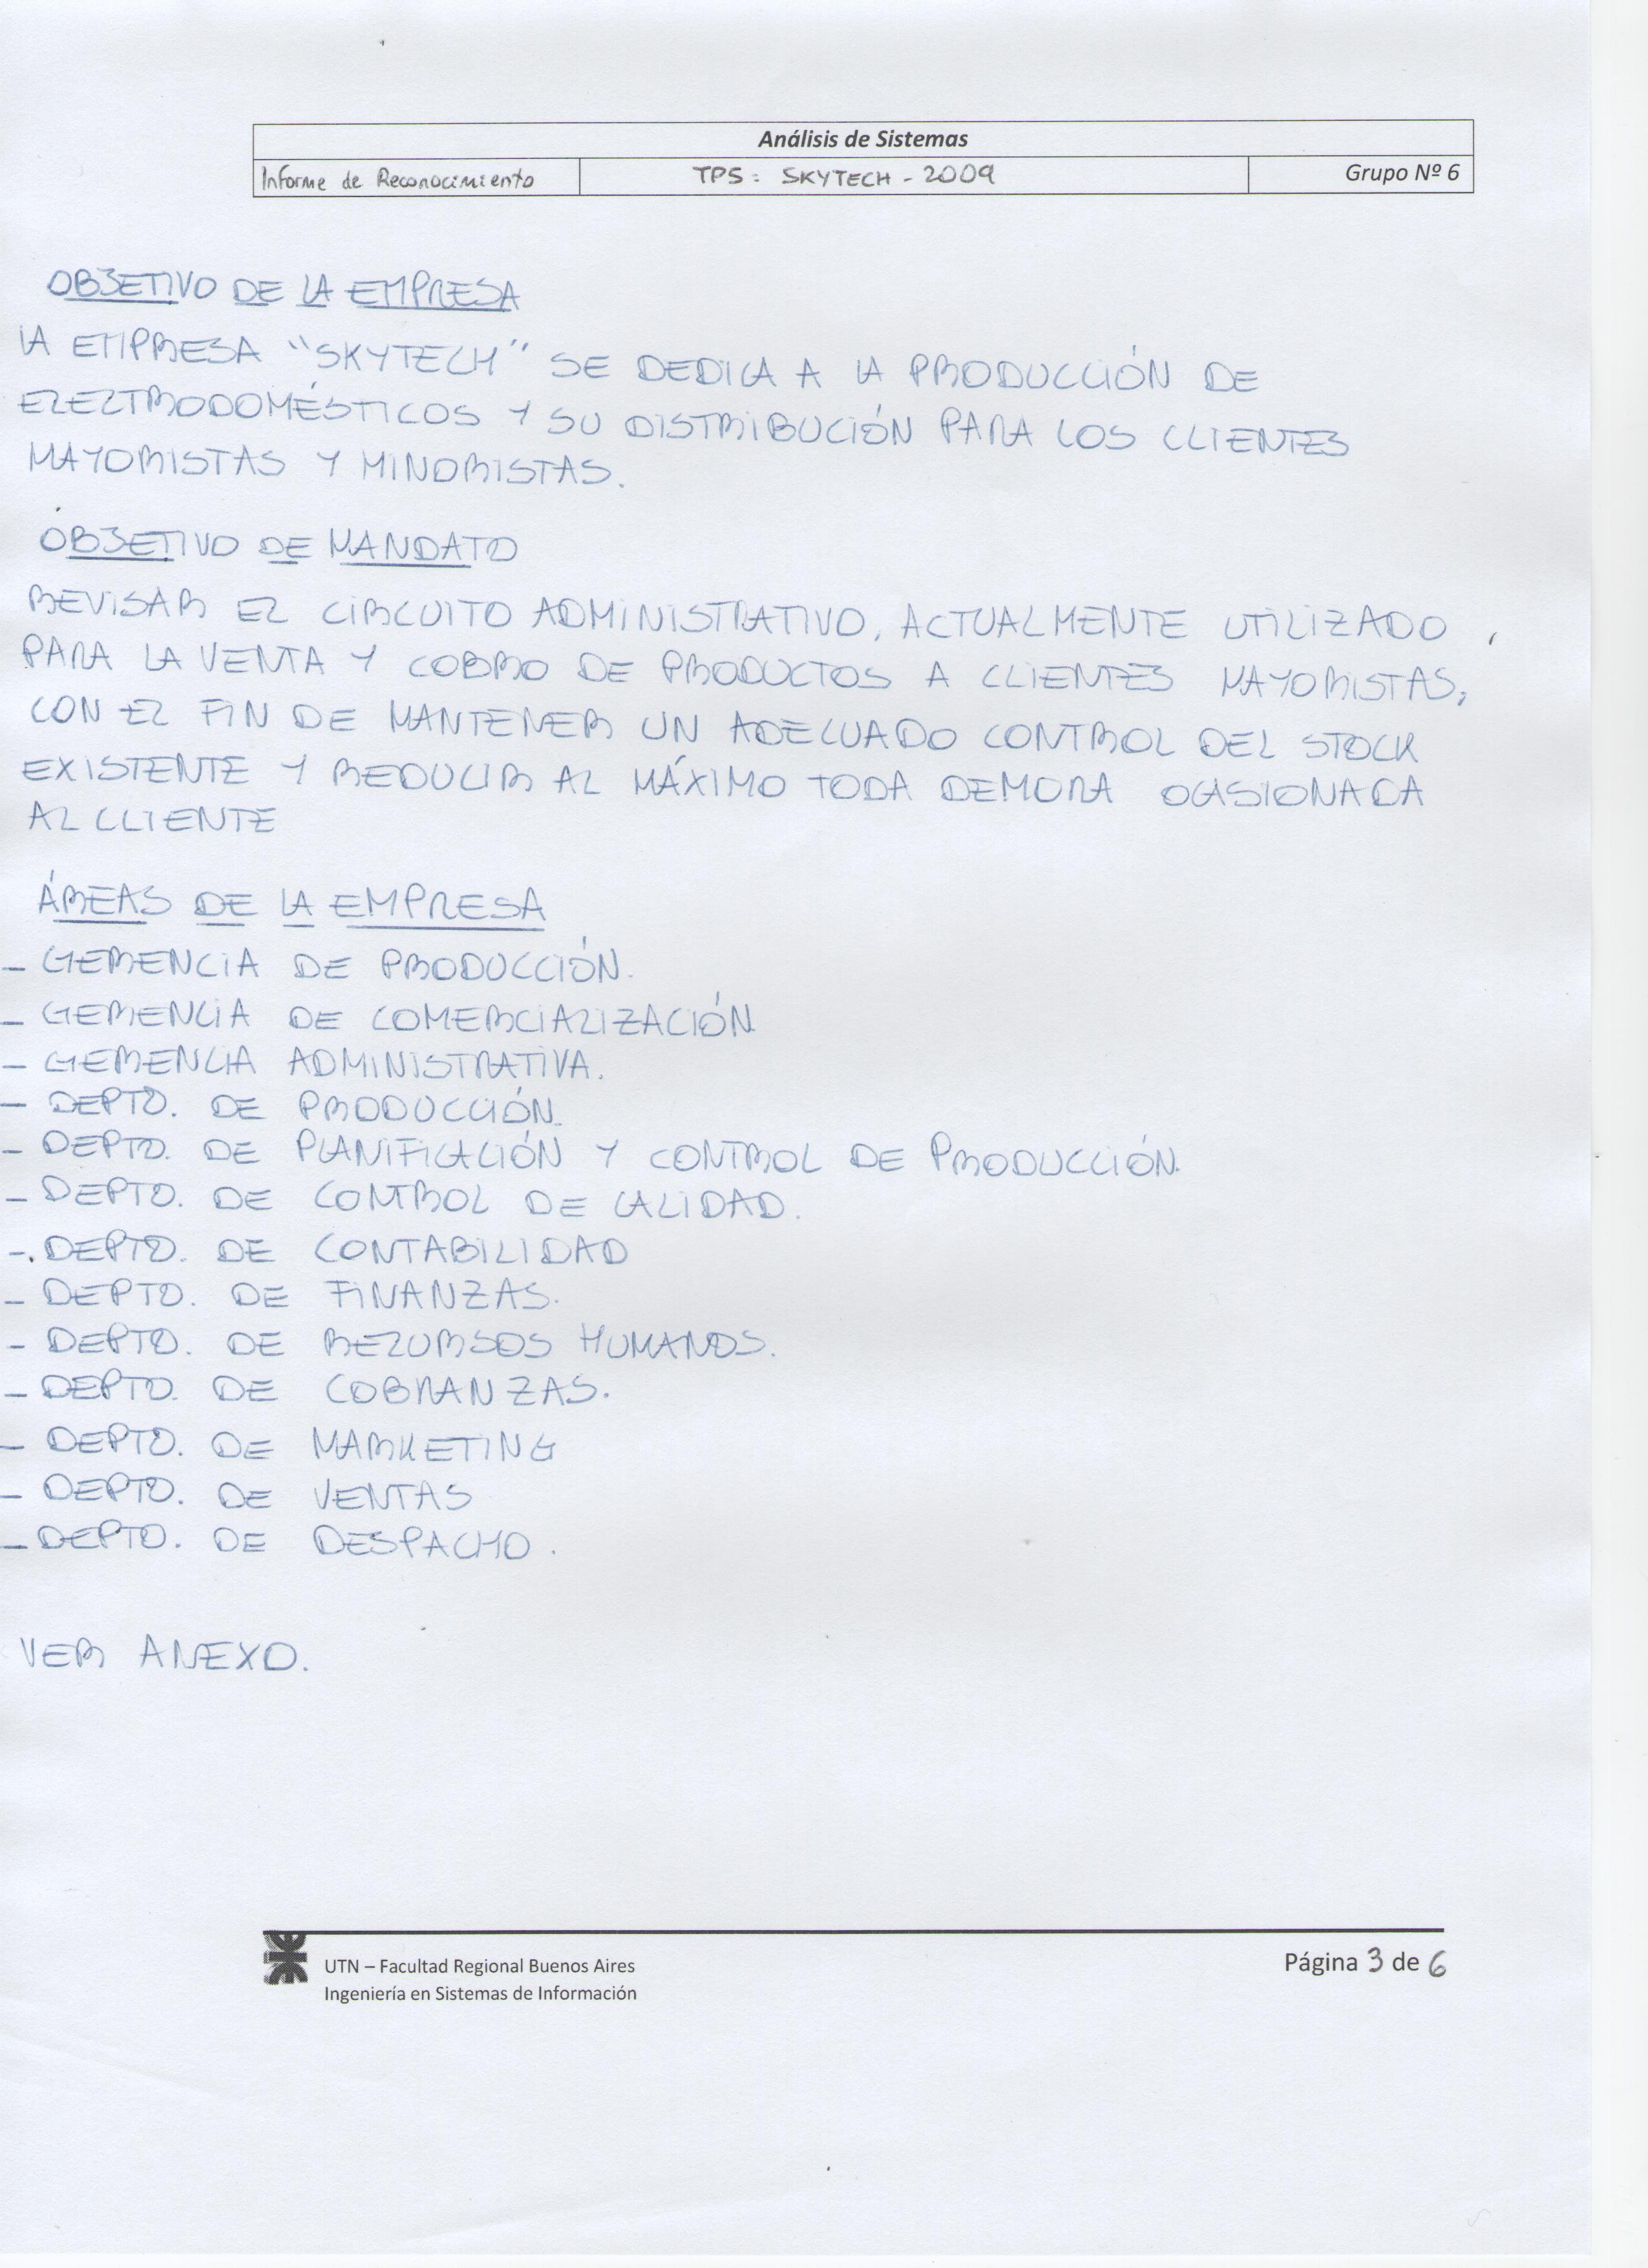 Análisis de Sistemas
Informe de Reconocimiento TPS: SKYTECH - 2009 Grupo Nº 6
OBJETIVO DE LA EMPRESA
LA EMPRESA "SKYTECH" SE DEDICA A LA PRODUCCIÓN DE
ELECTRODOMÉSTICOS Y SU DISTRIBUCIÓN PARA LOS CLIENTES
MAYORISTAS Y MINORISTAS.
OBJETIVO DE MANDATO
REVISAR EL CIRCUITO ADMINISTRATIVO, ACTUALMENTE UTILIZADO
PARA LA VENTA Y COBRO DE PRODUCTOS A CLIENTES MAYORISTAS,
CON EL FIN DE MANTENER UN ADECUADO CONTROL DEL STOCK
EXISTENTE Y REDUCIR AL MÁXIMO TODA DEMORA OCASIONADA
AL CLIENTE
ÁREAS DE LA EMPRESA
- GERENCIA DE PRODUCCIÓN.
- GERENCIA DE COMERCIALIZACIÓN
- GERENCIA ADMINISTRATIVA.
- DEPTO. DE PRODUCCIÓN.
- DEPTO. DE PLANIFICACIÓN Y CONTROL DE PRODUCCIÓN.
- DEPTO. DE CONTROL DE CALIDAD.
- DEPTO. DE CONTABILIDAD
- DEPTO. DE FINANZAS.
- DEPTO. DE RECURSOS HUMANOS.
- DEPTO. DE COBRANZAS.
- DEPTO. DE MARKETING
- DEPTO. DE VENTAS
- DEPTO. DE DESPACHO.
VER ANEXO.
UTN – Facultad Regional Buenos Aires Página 3 de 6
Ingeniería en Sistemas de Información